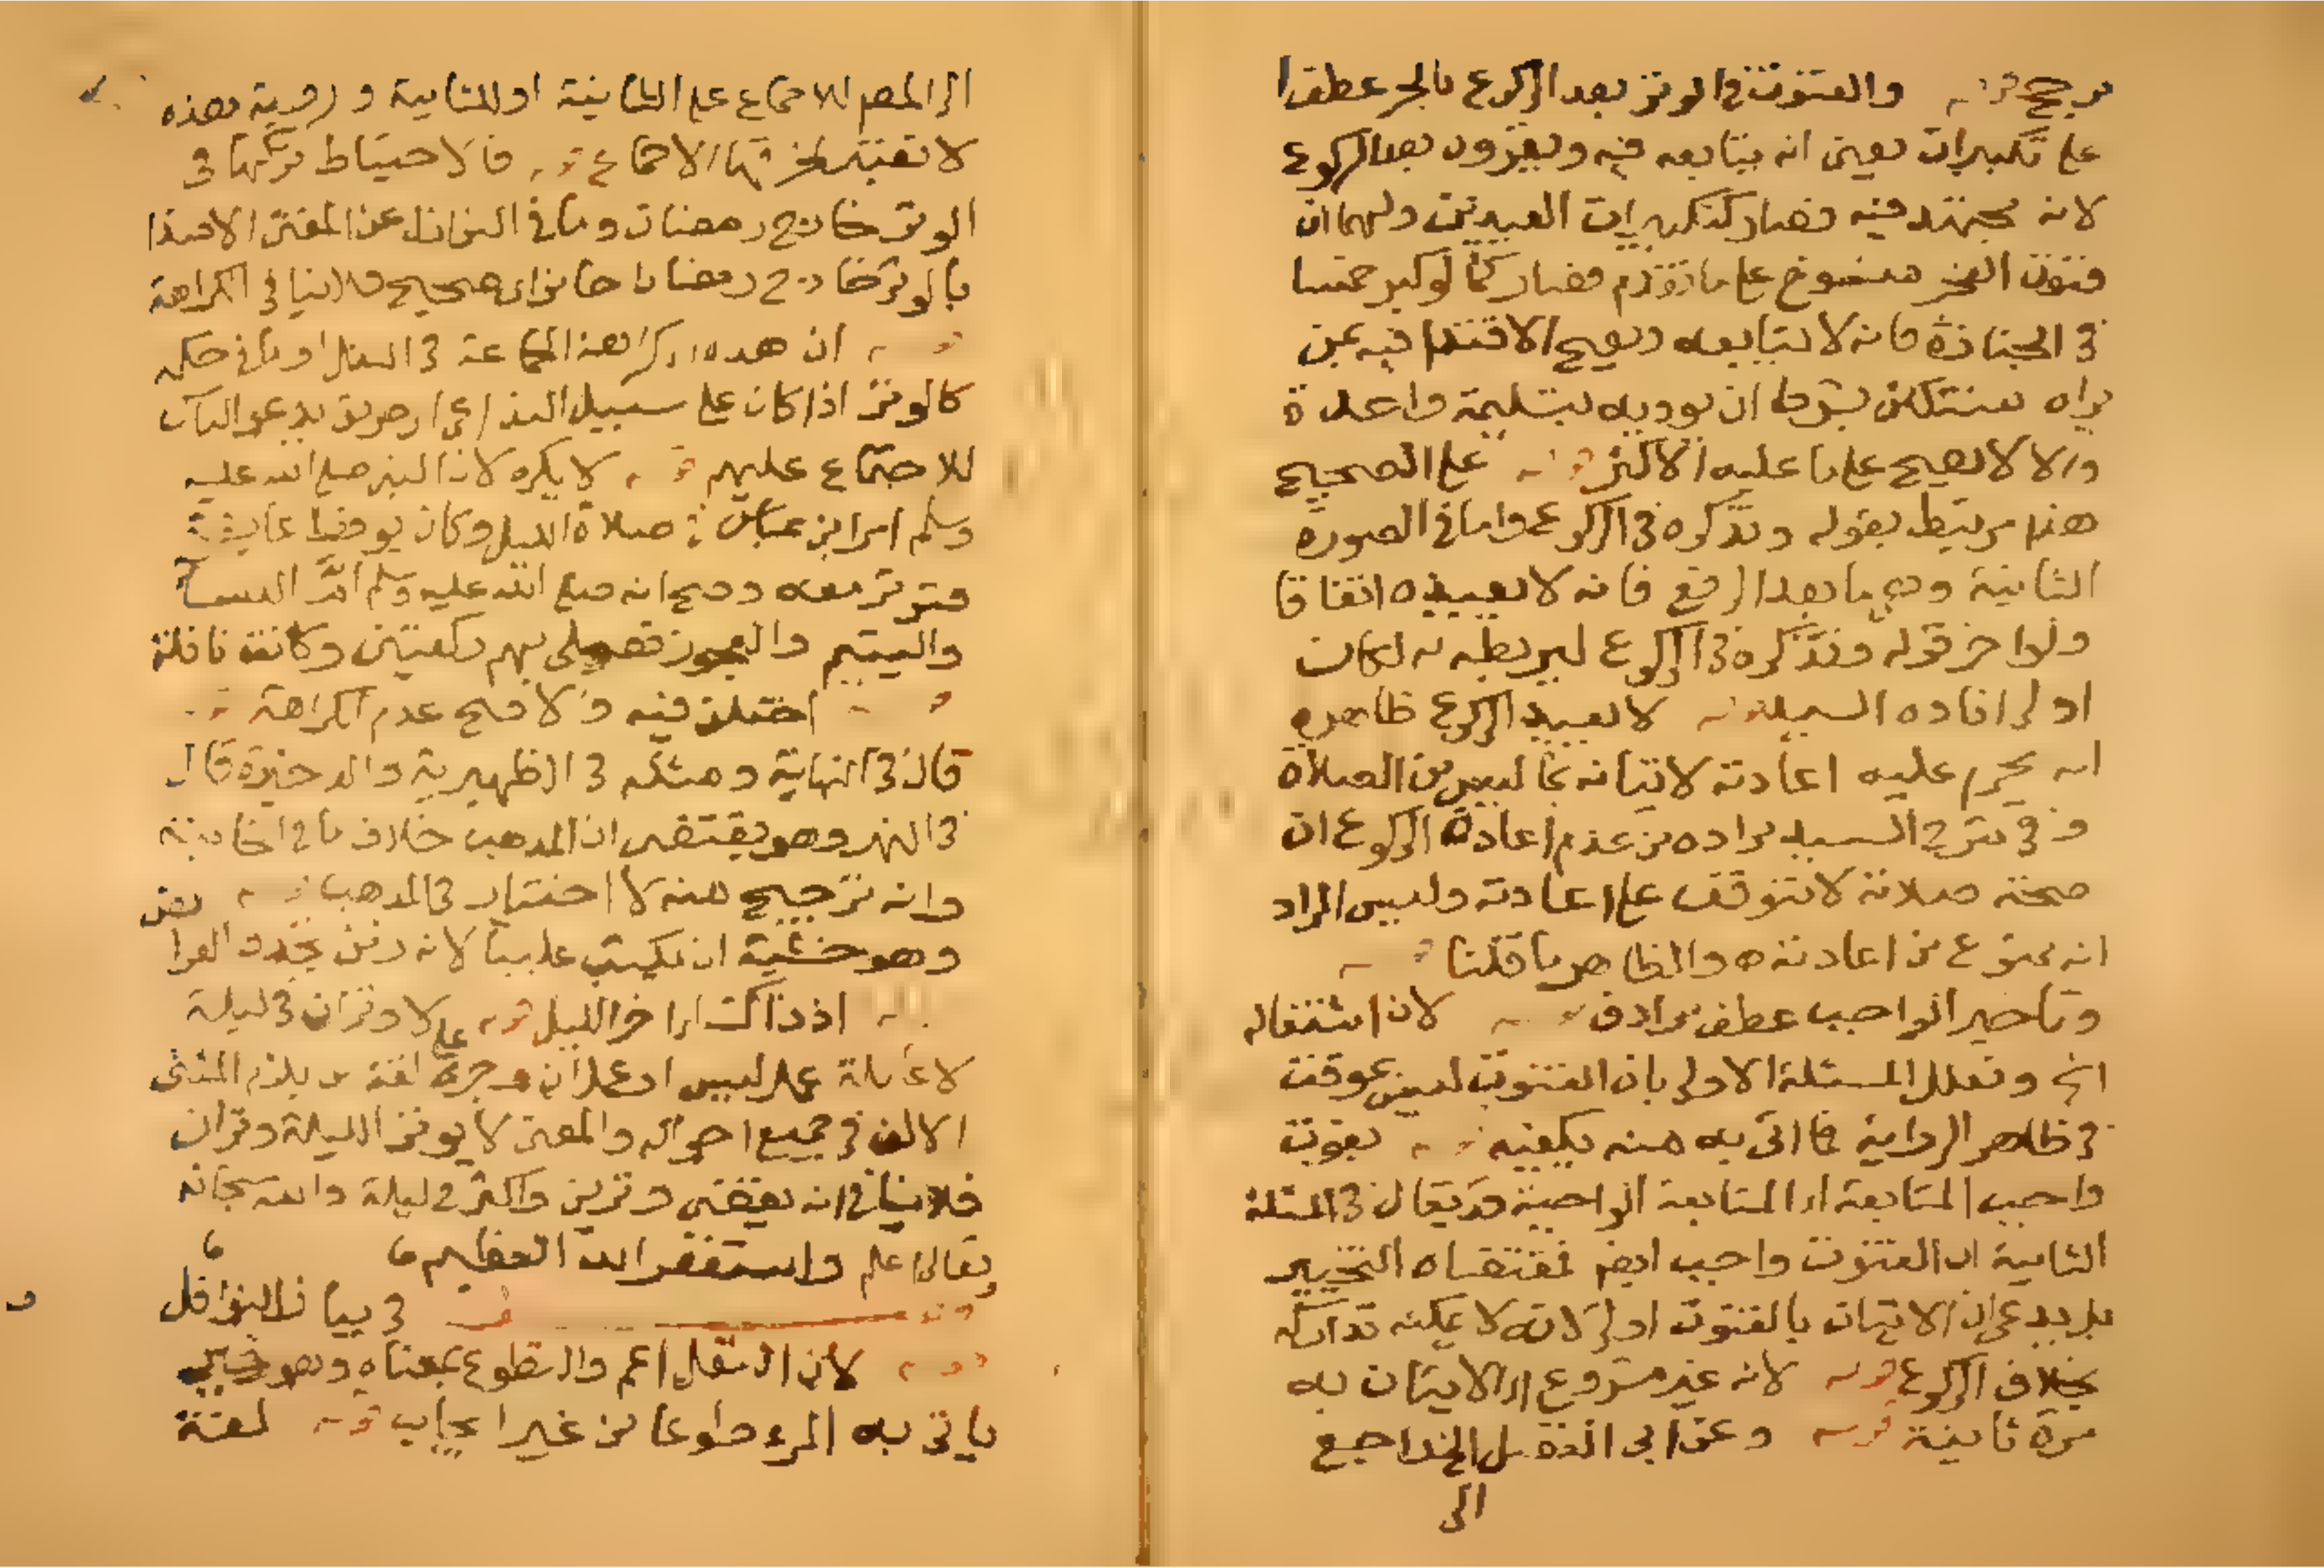 يرجح قوله والقنوت في الوتر بعد الركوع بالجر عطفا
على تكبيرات يعني انه يتابعه فيه ويقرون بعد الركوع
لانه مجتهد فيه فصار كتكبيرات العيدين ولهما ان
قنوت الفجر منسوخ على ما تقدم فصار كما لو كبر خمسا
في الجنازة فانه لا يتابعه ويصح الاقتدا فيه بمن
يراه سنة لكن بشرط ان يوديه بتسليمة واحدة
والا لا يصح على ما عليه الاكثر قوله على الصحيح
هذا مرتبط بقوله وتذكره في الركوع واما في الصورة
الثانية وهي ما بعد الرفع فانه لا يعيده اتفاقا
ولو اخر قوله وتذكره في الركوع ليربطه به لكان
اولى افاده السيد قوله لا يعيد الركوع ظاهره
انه يحرم عليه اعادته لاتيانه بما ليس من الصلاة
وفي شرح السيد مراده من عدم اعادة الركوع ان
صحة صلاته لا تتوقف على اعادته وليس المراد
انه ممنوع من اعادته ه والظاهر ما قلنا
وتاخير الواجب عطف مرادف قوله لان اشتغاله
الخ وتعلل المسئلة الاولى بان القنوت ليس بموقت
في ظاهر الرواية فما اتى به منه يكفيه قوله بفوت
واجب المتابعة اي المتابعة الواجبة قد يقال في المسئلة
الثانية ان القنوت واجب ايضا فمقتضاه التخيير
بل يدعى ان الاتيان بالقنوت اولى لانه لا يمكنه تداركه
بخلاف الركوع قوله لانه غير مشروع اي الاتيان به
مرة ثانية قوله وعن ابي الفضل الخ راجع
الى
الى المصر للاجتماع على الثانية او للثانية ورؤية هذه
لا تعتبر لخرقها الاجماع قوله فالاحتياط تركها في
الوتر خارج رمضان وما في النوازل عن المفتى الاقتدا
بالوتر خارج رمضان جائز اي صحيح فلا ينافي الكراهة
قوله ان هذه اي كراهة الجماعة في النفل او ما في حكمه
كالوتر اذا كان على سبيل التداعي اي طريق يدعو الناس
للاجتماع عليهم قوله لا يكره لان النبي صلى الله عليه
وسلم ام ابن عباس في صلاة الليل وكان يوقظ عايشة
فتوتر معه وصح انه صلى الله عليه وسلم ام انسا
واليتيم والعجوز فصلى بهم ركعتين وكانت نافلة
قوله اختلف فيه والاصح عدم الكراهة قوله
قال في النهاية ومثله في الظهيرية والذخيرة قال
في النهر وهو يقتضي ان المذهب خلاف ما في الخانية
وانه ترجيح منه لا اختيار في المذهب قوله
وهو خشية ان تكتب علينا لانه زمن تجدد
قوله اذ ذاك اي اخر الليل قوله لا وتران في ليلة
لا عاملة عمل ليس او عمل ان وجرى لغة من يلزم المثنى
الالف في جميع احواله والمعنى لا يوتر الليلة وتران
فلا ينافي انه يقضي وترين واكثر في ليلة والله سبحانه
وتعالى اعلم واستغفر الله العظيم
فصل في بيان النوافل
قوله لان النفل اعم والتطوع بمعناه وهو خير
ياتي به المرء طوعا من غير ايجاب قوله لمغتة